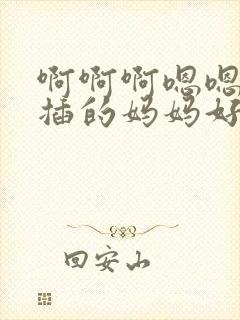 啊啊啊嗯嗯
插的妈妈好
回安山